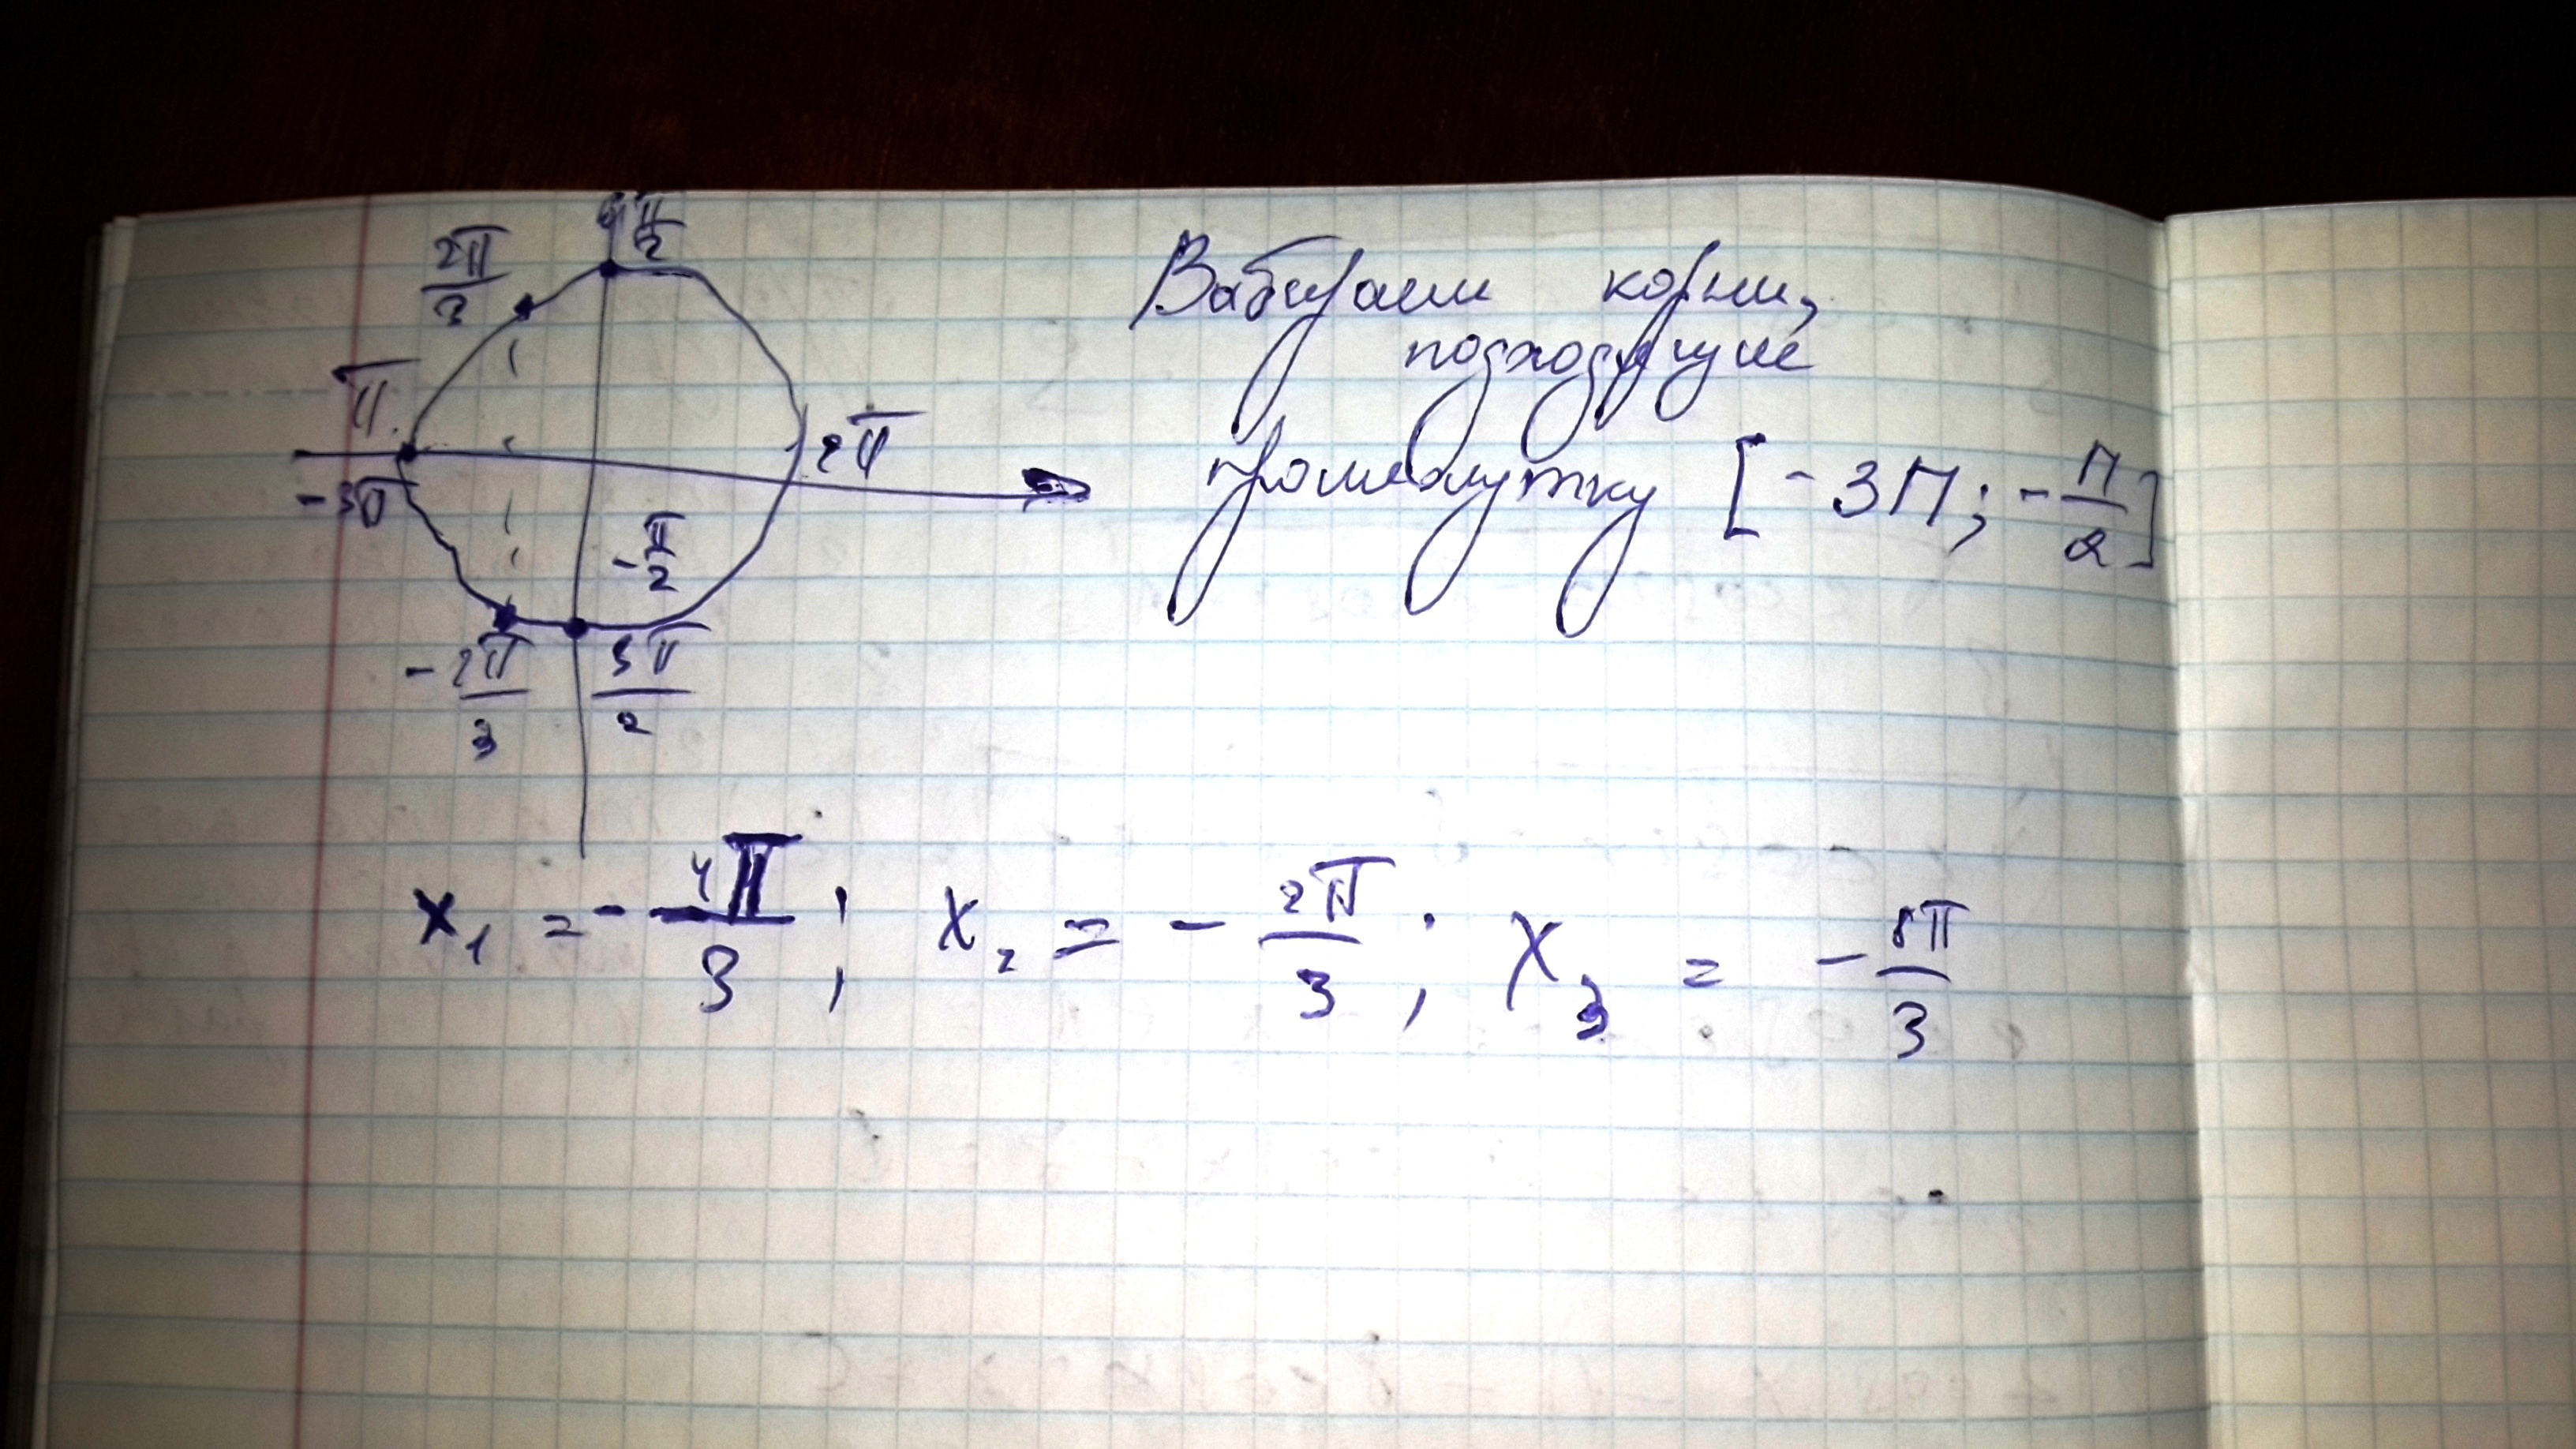 2π/3
π/2
π
-3π
2π
-π/2
-2π/3
3π/2
Вабираем корни,
подходящие
промежутку [-3П; -П/2]
x₁ = -4π/3 ; x₂ = -2π/3 ; x₃ = -8π/3